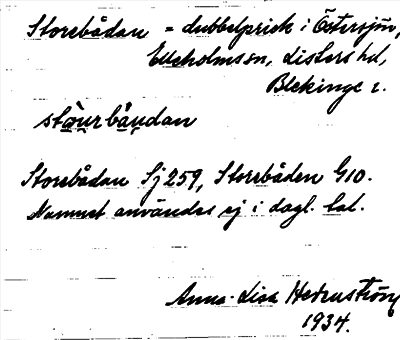 Storebådan = dubbelprick i Östersjön,
Elleholms sn, Listers hd,
Blekinge l.
stòu̯rbåu̯dan
Storebådan Sj 259, Storebåden G10.
Namnet användes ej i dagl. tal.
Anna-Lisa Hedenström
1934.